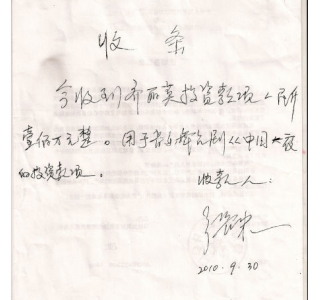 收 条
今收到齐丽英投资款项人民币
壹佰万元整。用于音乐舞台剧《中国大夜
的投资款项。
收款人:
2010.9.30